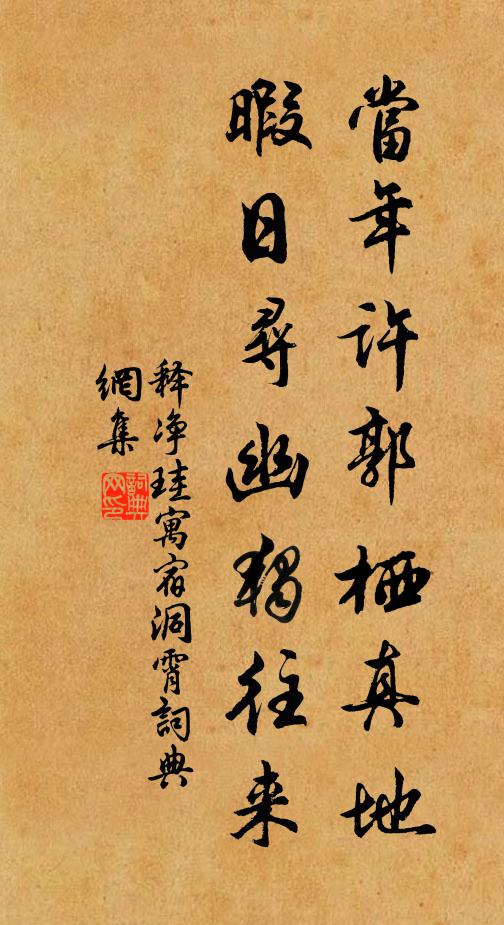 當年許郭栖真地
暇日尋幽獨往来
释净珪寓宿洞霄詞典
網集
詞典网印